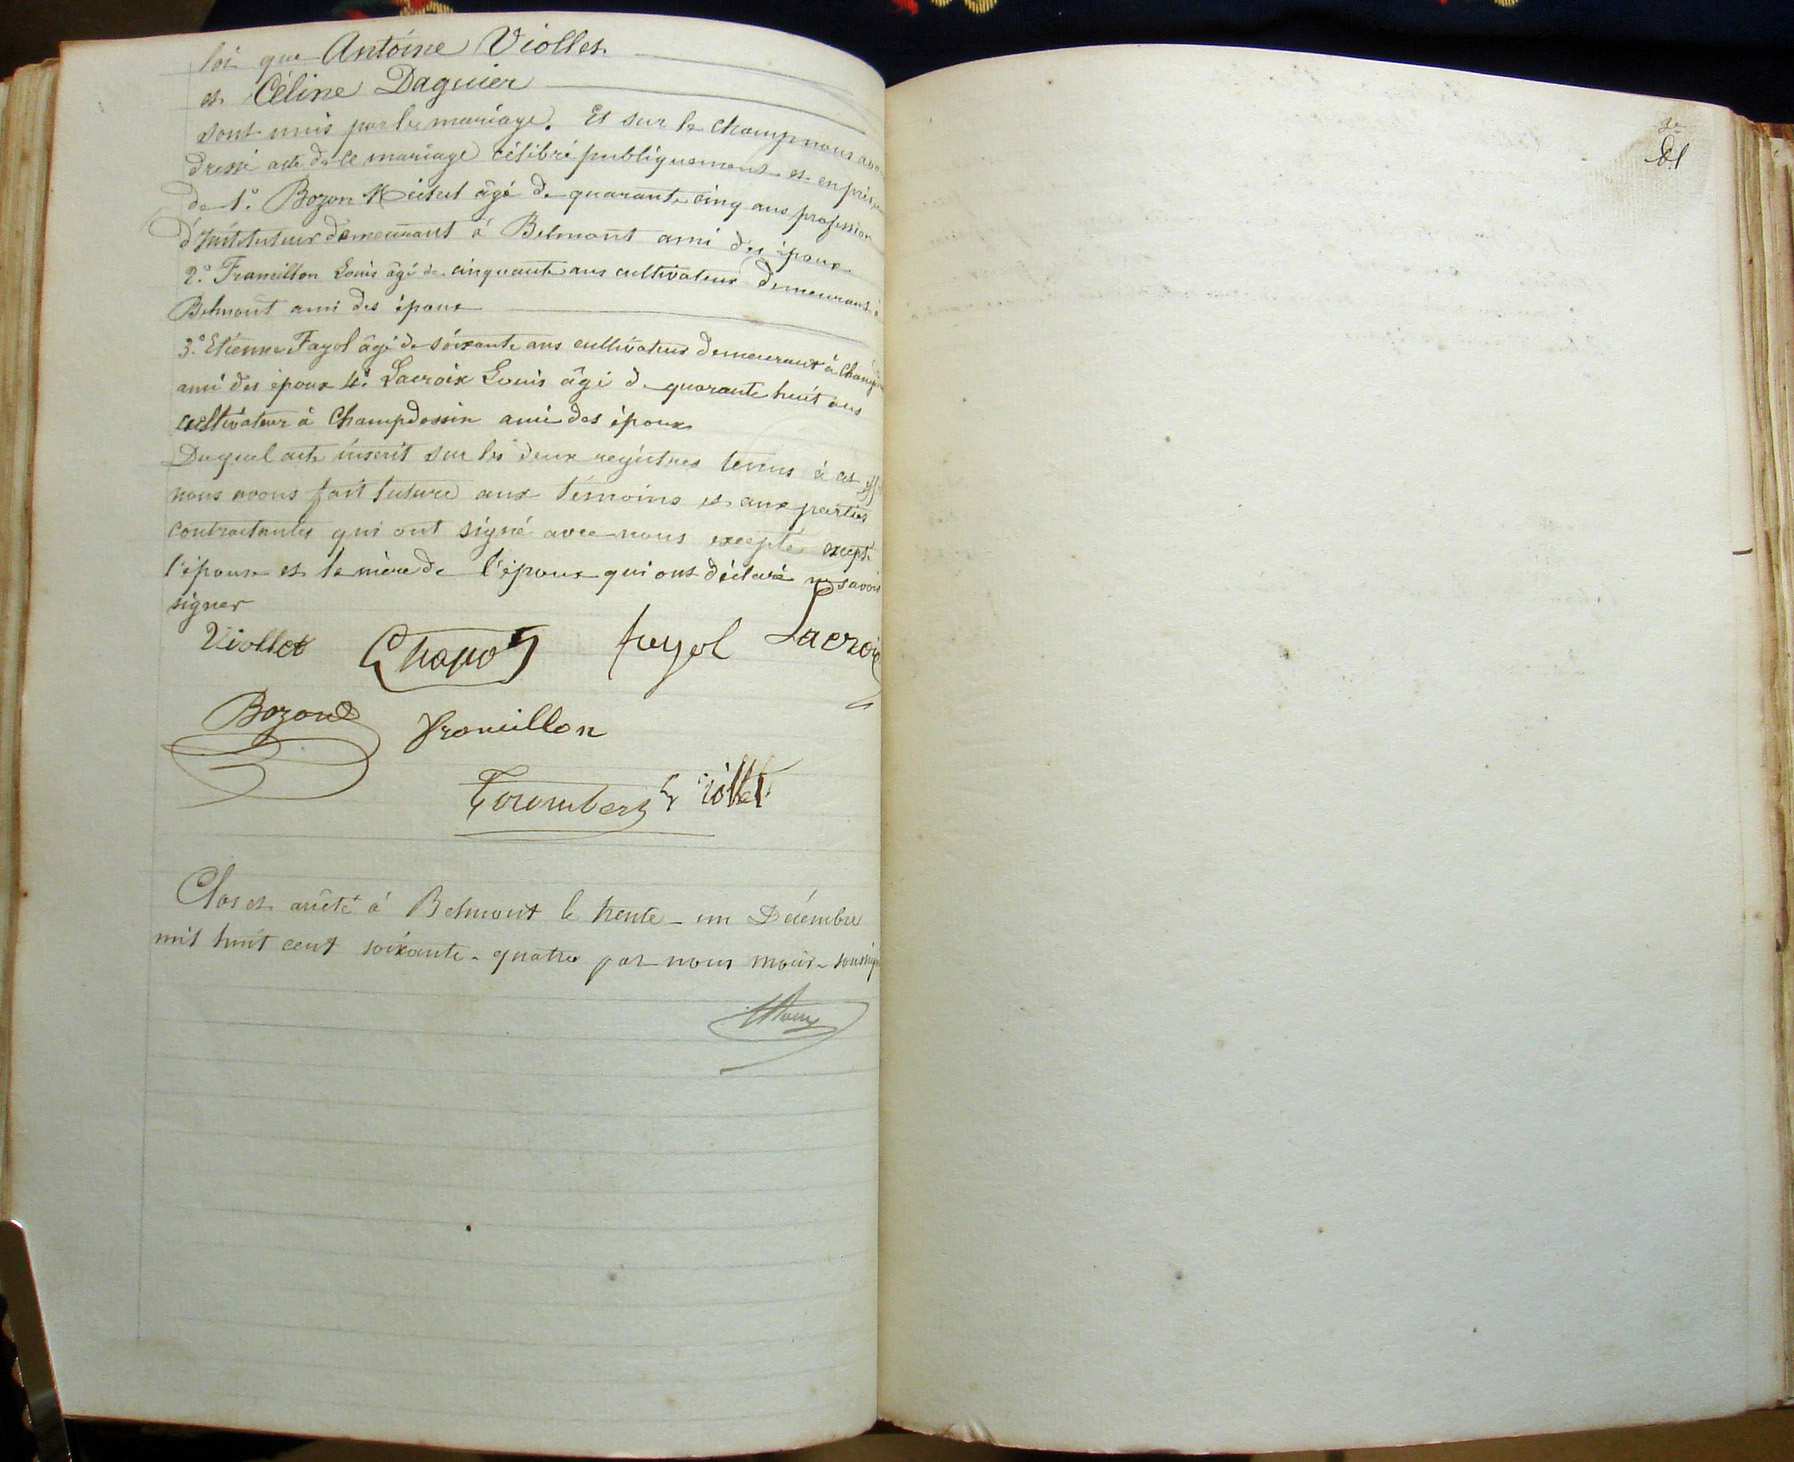 loi que Antoine Viollet
et Céline Daguier
sont unis par le mariage. Et sur le champ nous avo
dressé acte de ce mariage célébré publiquement et en prés
de 1.° Bozon Michel âgé de quarante cinq ans profession
d'Instituteur demeurant à Belmont ami des époux
2.° Framillon Louis âgé de cinquante ans cultivateur demeurant à
Belmont ami des époux
3.° Etienne Fayol âgé de soixante ans cultivateur demeurant à Champ
ami des époux 4.° Lacroix Louis âgé de quarante huit ans
cultivateur à Champdossin ami des époux
Duquel acte inscrit sur les deux registres tenus à cet eff
nous avons fait lecture aux témoins et aux parties
contractantes qui ont signé avec nous excepté excepté
l'épouse et la mère de l'époux qui ont déclaré ne savoir
signer
Viollet Fayol Lacroix
Bozon
Trombert Viollet
Clos et arrêté à Belmont le trente-un Décembre
mil huit cent soixante-quatre par nous maire soussign
81